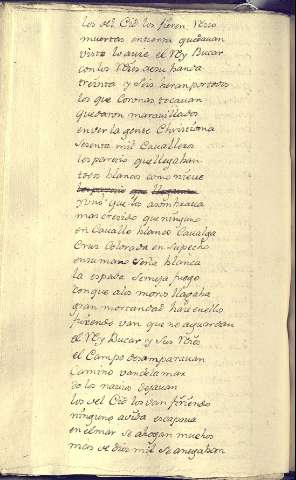 los del Cid los fieren Recio
muertos entierra quedauan
visto lo auie el Rey Bucar
con los Reies de su banda
treinta y seis heran por todos
los que Coronas tocauan
quedaron marauillados
en ver la gente Christiana
Sesenta mil Caualleros
los parecio que llegaban
todos blancos como nieue
los parecio que llegauan
y uno que los asombraua
mas crecido que ninguno
en Cauallo blanco Caualga
Cruz Colorada en su pecho
en su mano Seña blanca
la espada Semeja fuego
con que a los moros llagaba
gran mortandad haze en ellos
fuiendo van que no aguardan
el Rey Bucar y sus Reies
el Campo desamparauan
Camino van de la mar
do los nauios dejauan
los del Cid los van firiendo
ninguno a vida escapaua
en el mar se ahogan muchos
mas de diez mil se anegaban